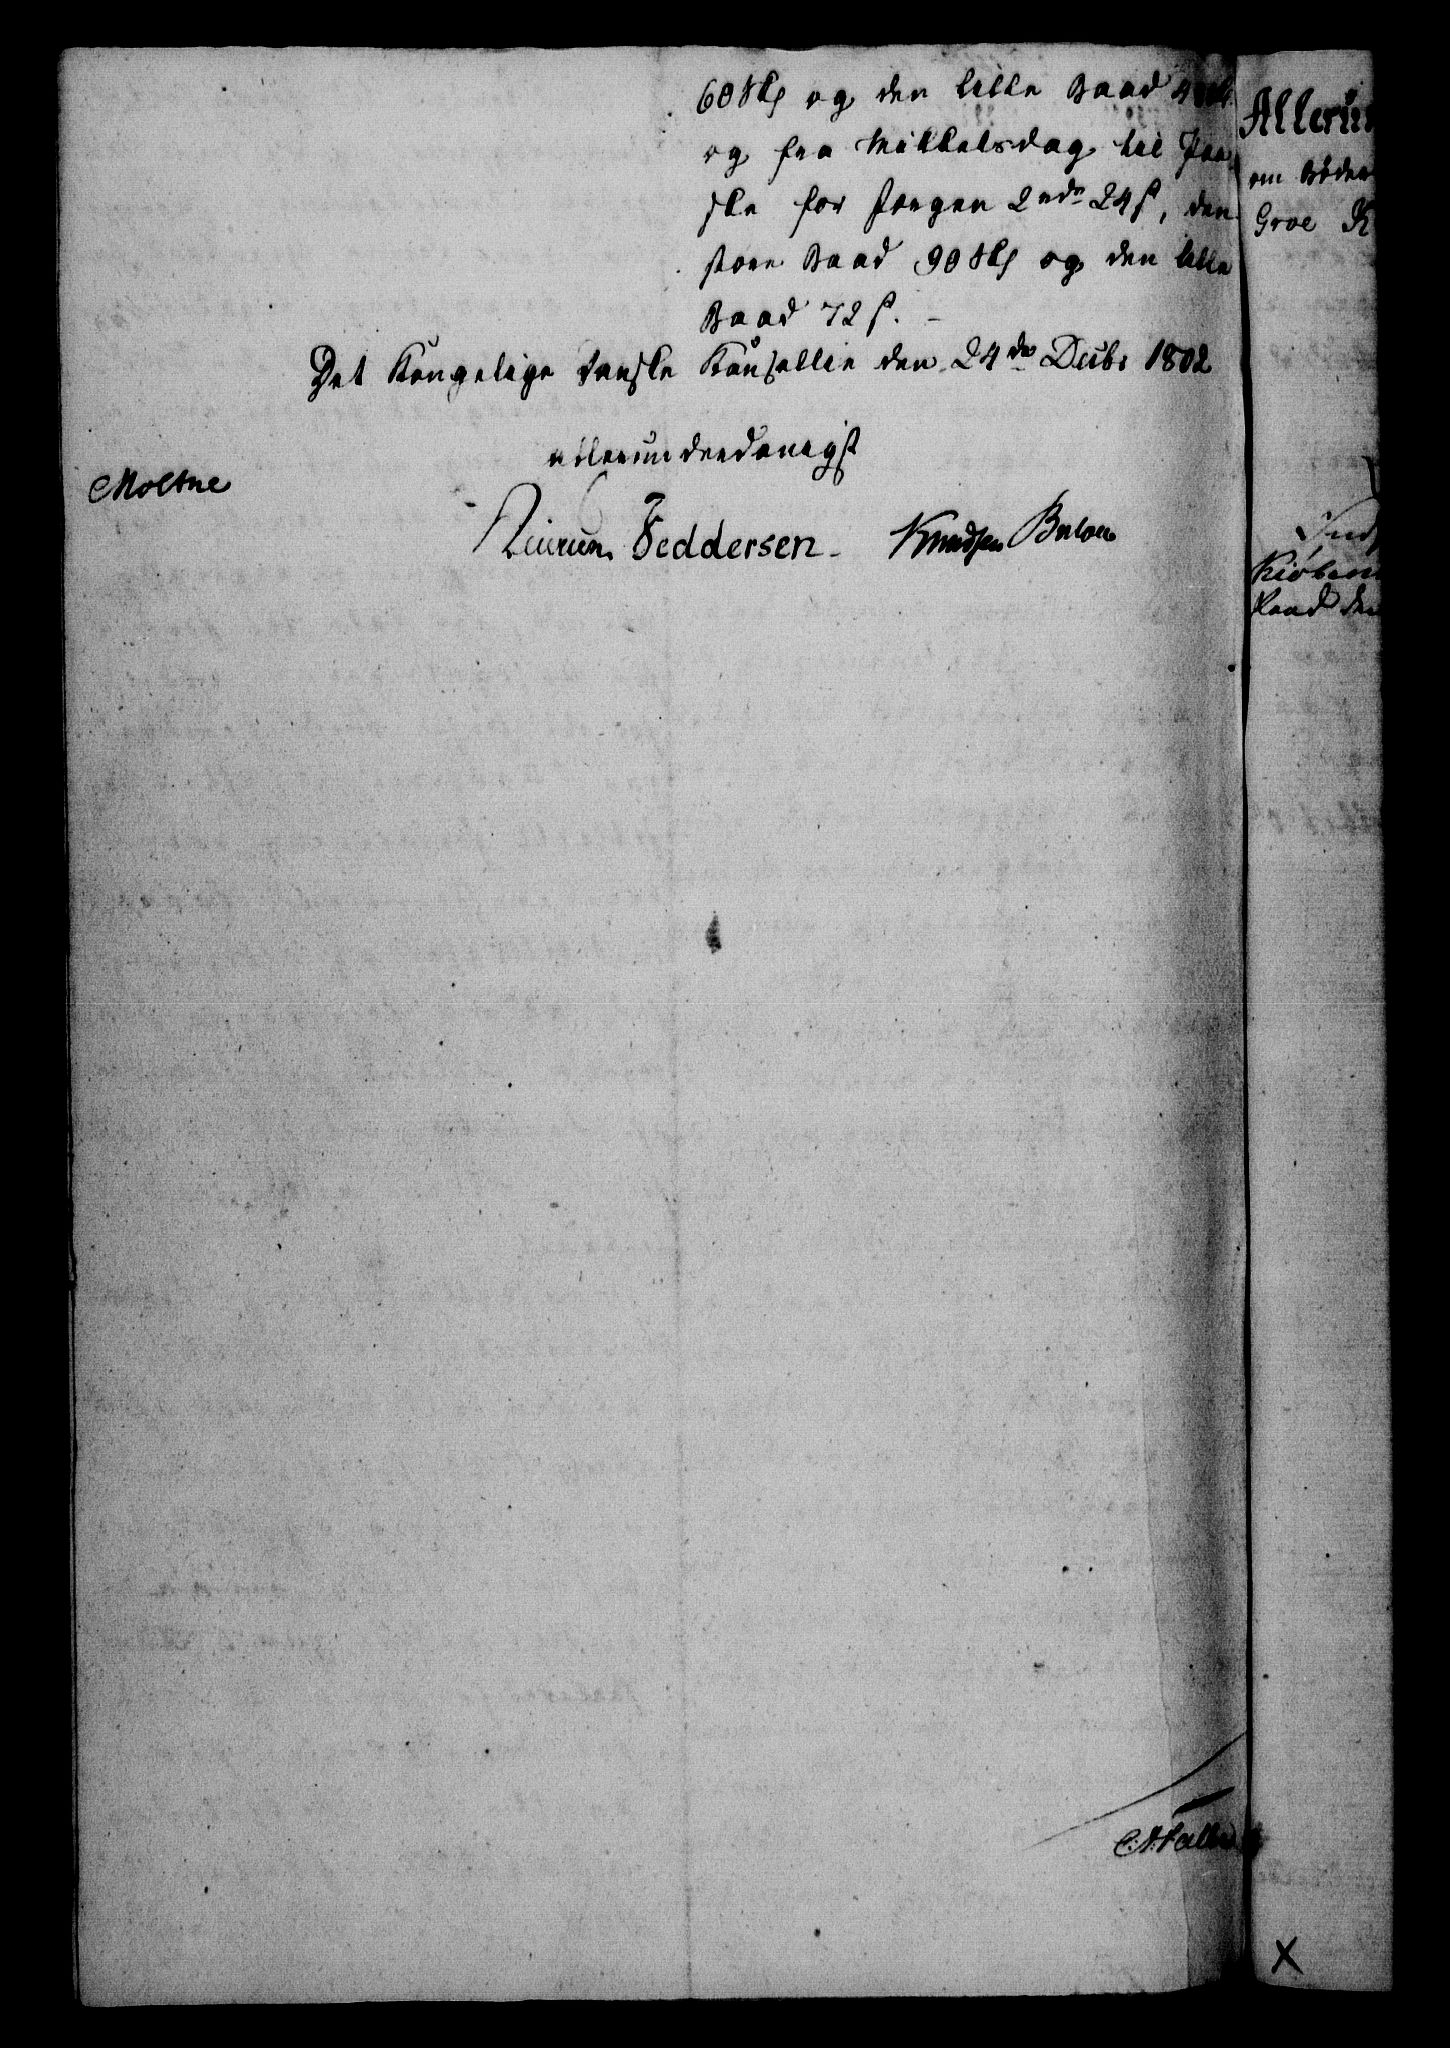 60 sk og den lille Baad
og fra Mikkelsdag til Paa
ske for Færgen 2 rdr 24 s, den
store Baad 90 sk og den lille
Baad 72 s. –
Det Kongelige danske Kancellie den 24de Decbr 1802
allerunderdanigst
Moltke
Feddersen. Knudsen Bülow
Allerun
om Bøder
Groe K
Ind
Kiøben
Raad den
X